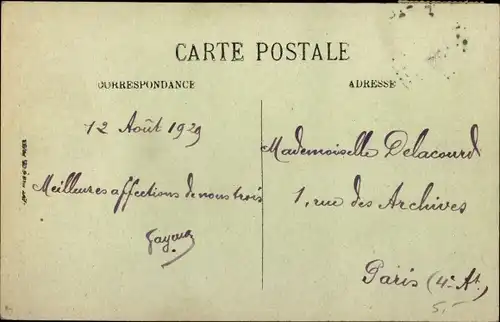 CARTE POSTALE
CORRESPONDANCE
ADRESSE
12 Août 1929
Meilleures affections de nous trois
Mademoiselle Delacourd
1, rue des Archives
Paris (4e At.
5.-